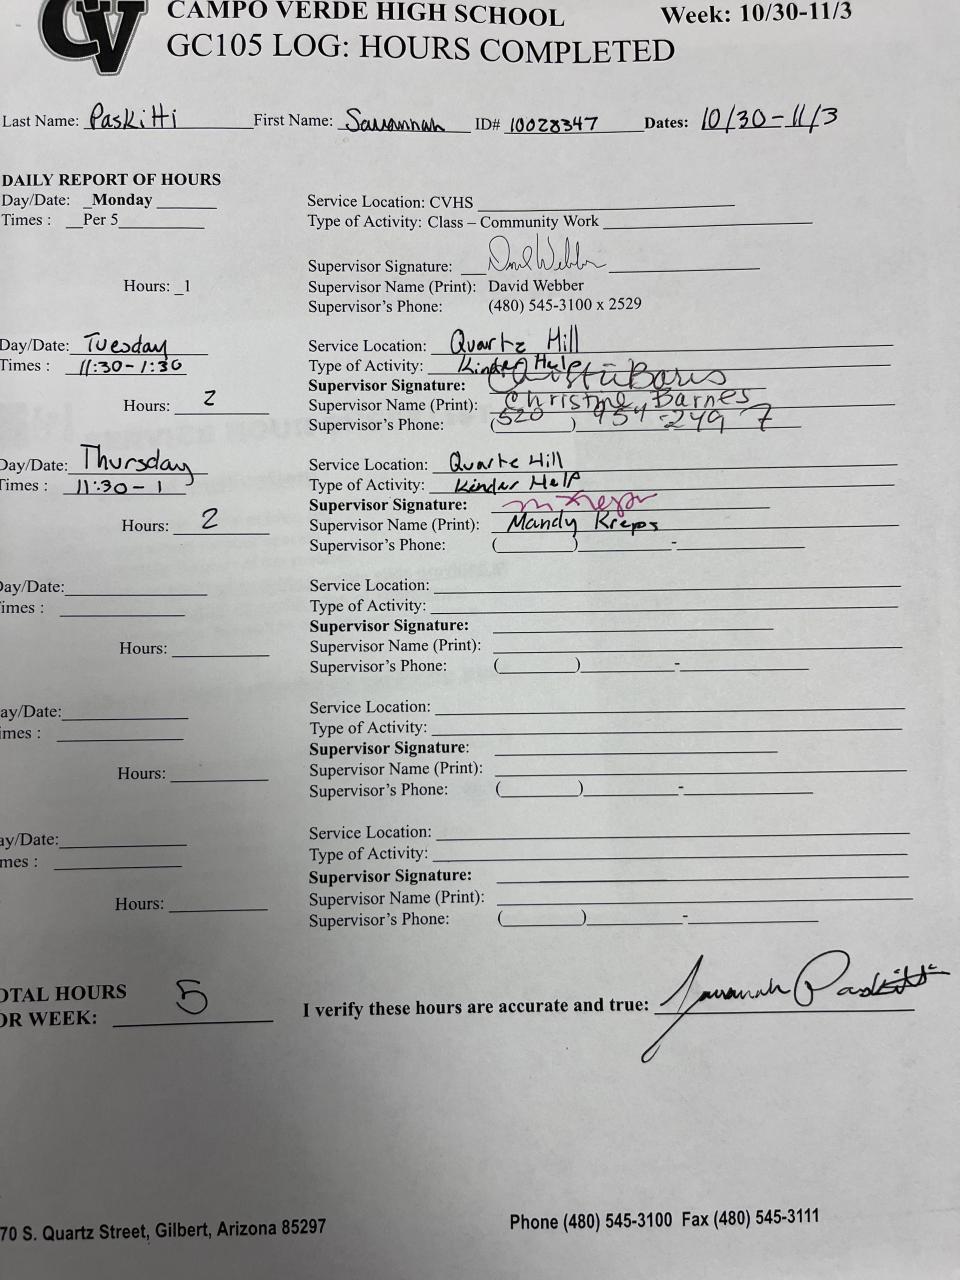 CV
CAMPO VERDE HIGH SCHOOL Week: 10/30-11/3
GC105 LOG: HOURS COMPLETED
Last Name: Paskitti First Name: Savannah ID# 10028347 Dates: 10/30-11/3
DAILY REPORT OF HOURS
Day/Date: _Monday
Times : __Per 5
Hours: _1
Service Location: CVHS
Type of Activity: Class – Community Work
Supervisor Signature: David Webber
Supervisor Name (Print): David Webber
Supervisor's Phone: (480) 545-3100 x 2529
Day/Date: Tuesday
Times : 11:30-1:30
Hours: 2
Service Location: Quartz Hill
Type of Activity: Kinder Help
Supervisor Signature:
Supervisor Name (Print): Christine Barnes
Supervisor's Phone: (520) 954-2497
Day/Date: Thursday
Times : 11:30-1
Hours: 2
Service Location: Quartz Hill
Type of Activity: Kinder Help
Supervisor Signature: M Kreps
Supervisor Name (Print): Mandy Kreps
Supervisor's Phone: ( ) -
Day/Date:
imes :
Hours:
Service Location:
Type of Activity:
Supervisor Signature:
Supervisor Name (Print):
Supervisor's Phone: ( ) -
ay/Date:
imes :
Hours:
Service Location:
Type of Activity:
Supervisor Signature:
Supervisor Name (Print):
Supervisor's Phone: ( ) -
ay/Date:
mes :
Hours:
Service Location:
Type of Activity:
Supervisor Signature:
Supervisor Name (Print):
Supervisor's Phone: ( ) -
OTAL HOURS
OR WEEK: 5
I verify these hours are accurate and true: Savannah Paskitti
70 S. Quartz Street, Gilbert, Arizona 85297 Phone (480) 545-3100 Fax (480) 545-3111